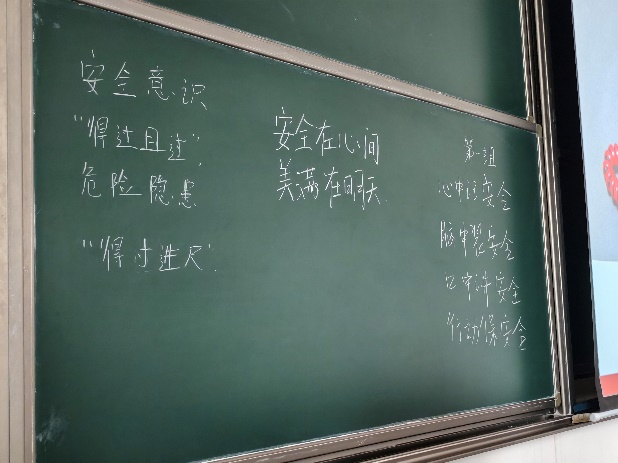 安全意识
“得过且过”
危险隐患
“得寸进尺”
安全在心间
美满在明天
第一组
心中记安全
脑中装安全
口中讲安全
行动保安全